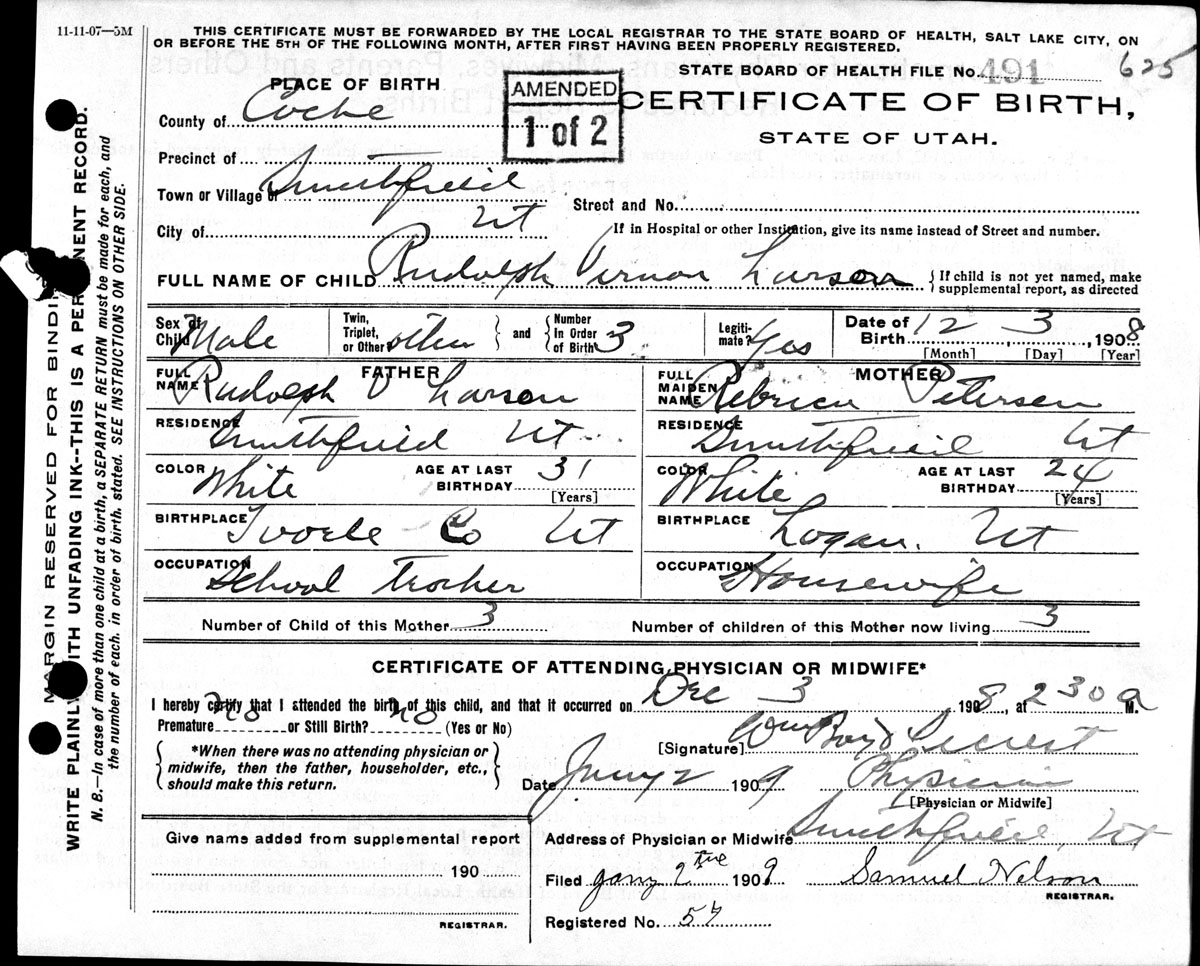 11-11-07—5M
THIS CERTIFICATE MUST BE FORWARDED BY THE LOCAL REGISTRAR TO THE STATE BOARD OF HEALTH, SALT LAKE CITY, ON
OR BEFORE THE 5TH OF THE FOLLOWING MONTH, AFTER FIRST HAVING BEEN PROPERLY REGISTERED.
STATE BOARD OF HEALTH FILE No. 491 625
PLACE OF BIRTH
AMENDED
1 of 2
CERTIFICATE OF BIRTH,
STATE OF UTAH.
County of Cache
Precinct of
Town or Village of Smithfield
Street and No.
City of Ut
If in Hospital or other Institution, give its name instead of Street and number.
FULL NAME OF CHILD Rudolph Vernon Larson { If child is not yet named, make
supplemental report, as directed
Sex of Child Male Twin, Triplet, or Other other and Number In Order of Birth 3 Legiti-mate? Yes Date of Birth 12, 3, 1908
[Month] [Day] [Year]
FATHER
FULL NAME Rudolph V Larson
RESIDENCE Smithfield Ut
COLOR White AGE AT LAST BIRTHDAY 31 [Years]
BIRTHPLACE Tooele Co Ut
OCCUPATION School Teacher
MOTHER
FULL MAIDEN NAME Rebecca Petersen
RESIDENCE Smithfield Ut
COLOR White AGE AT LAST BIRTHDAY 24 [Years]
BIRTHPLACE Logan. Ut
OCCUPATION Housewife
Number of Child of this Mother 3 Number of children of this Mother now living 3
CERTIFICATE OF ATTENDING PHYSICIAN OR MIDWIFE*
I hereby certify that I attended the birth of this child, and that it occurred on Dec 3 1908, at 2 30 a M.
Premature no or Still Birth? no (Yes or No)
*When there was no attending physician or
midwife, then the father, householder, etc.,
should make this return.
[Signature] Wm Boyd
Date Jany 2 1909 Physician
[Physician or Midwife]
Address of Physician or Midwife Smithfield, Ut
Give name added from supplemental report
190
REGISTRAR.
Filed Jany 2 1909 Samuel Nelson
REGISTRAR.
Registered No. 57
MARGIN RESERVED FOR BINDING
WRITE PLAINLY WITH UNFADING INK--THIS IS A PERMANENT RECORD.
N. B.—In case of more than one child at a birth, a SEPARATE RETURN must be made for each, and
the number of each, in order of birth, stated. SEE INSTRUCTIONS ON OTHER SIDE.